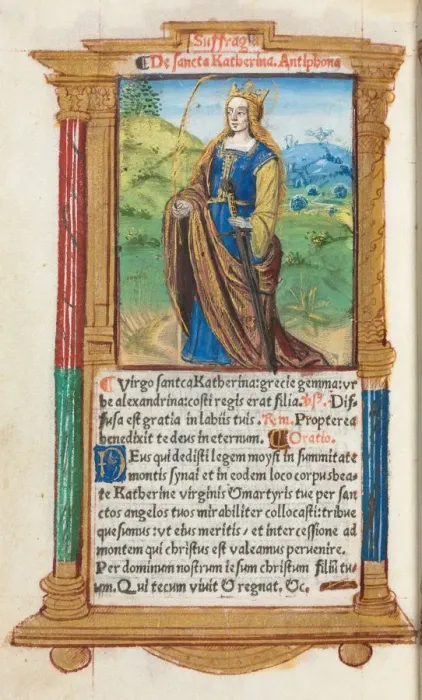 Suffragia
De sancta Katherina. Antiphona
Virgo santcaKatherina:grecie gemma:vr
be alexandrina:costi regis erat filia. ℣. Dif
fusa est gratia in labiis tuis. R. m. Propterea
benedixit te deus in eternum. Oratio.
DEus qui dedisti legem moysi in summitate
montis synai et in eodem loco corpus bea-
te Katherine virginis & martyris tue per san
ctos angelos tuos mirabiliter collocasti:tribue
quesumus:vt eius meritis / et intercessione ad
montem qui christus est valeamus peruenire.
Per dominum nostrum iesum christum filiū tu-
um. Qui tecum viuit & regnat. &c.